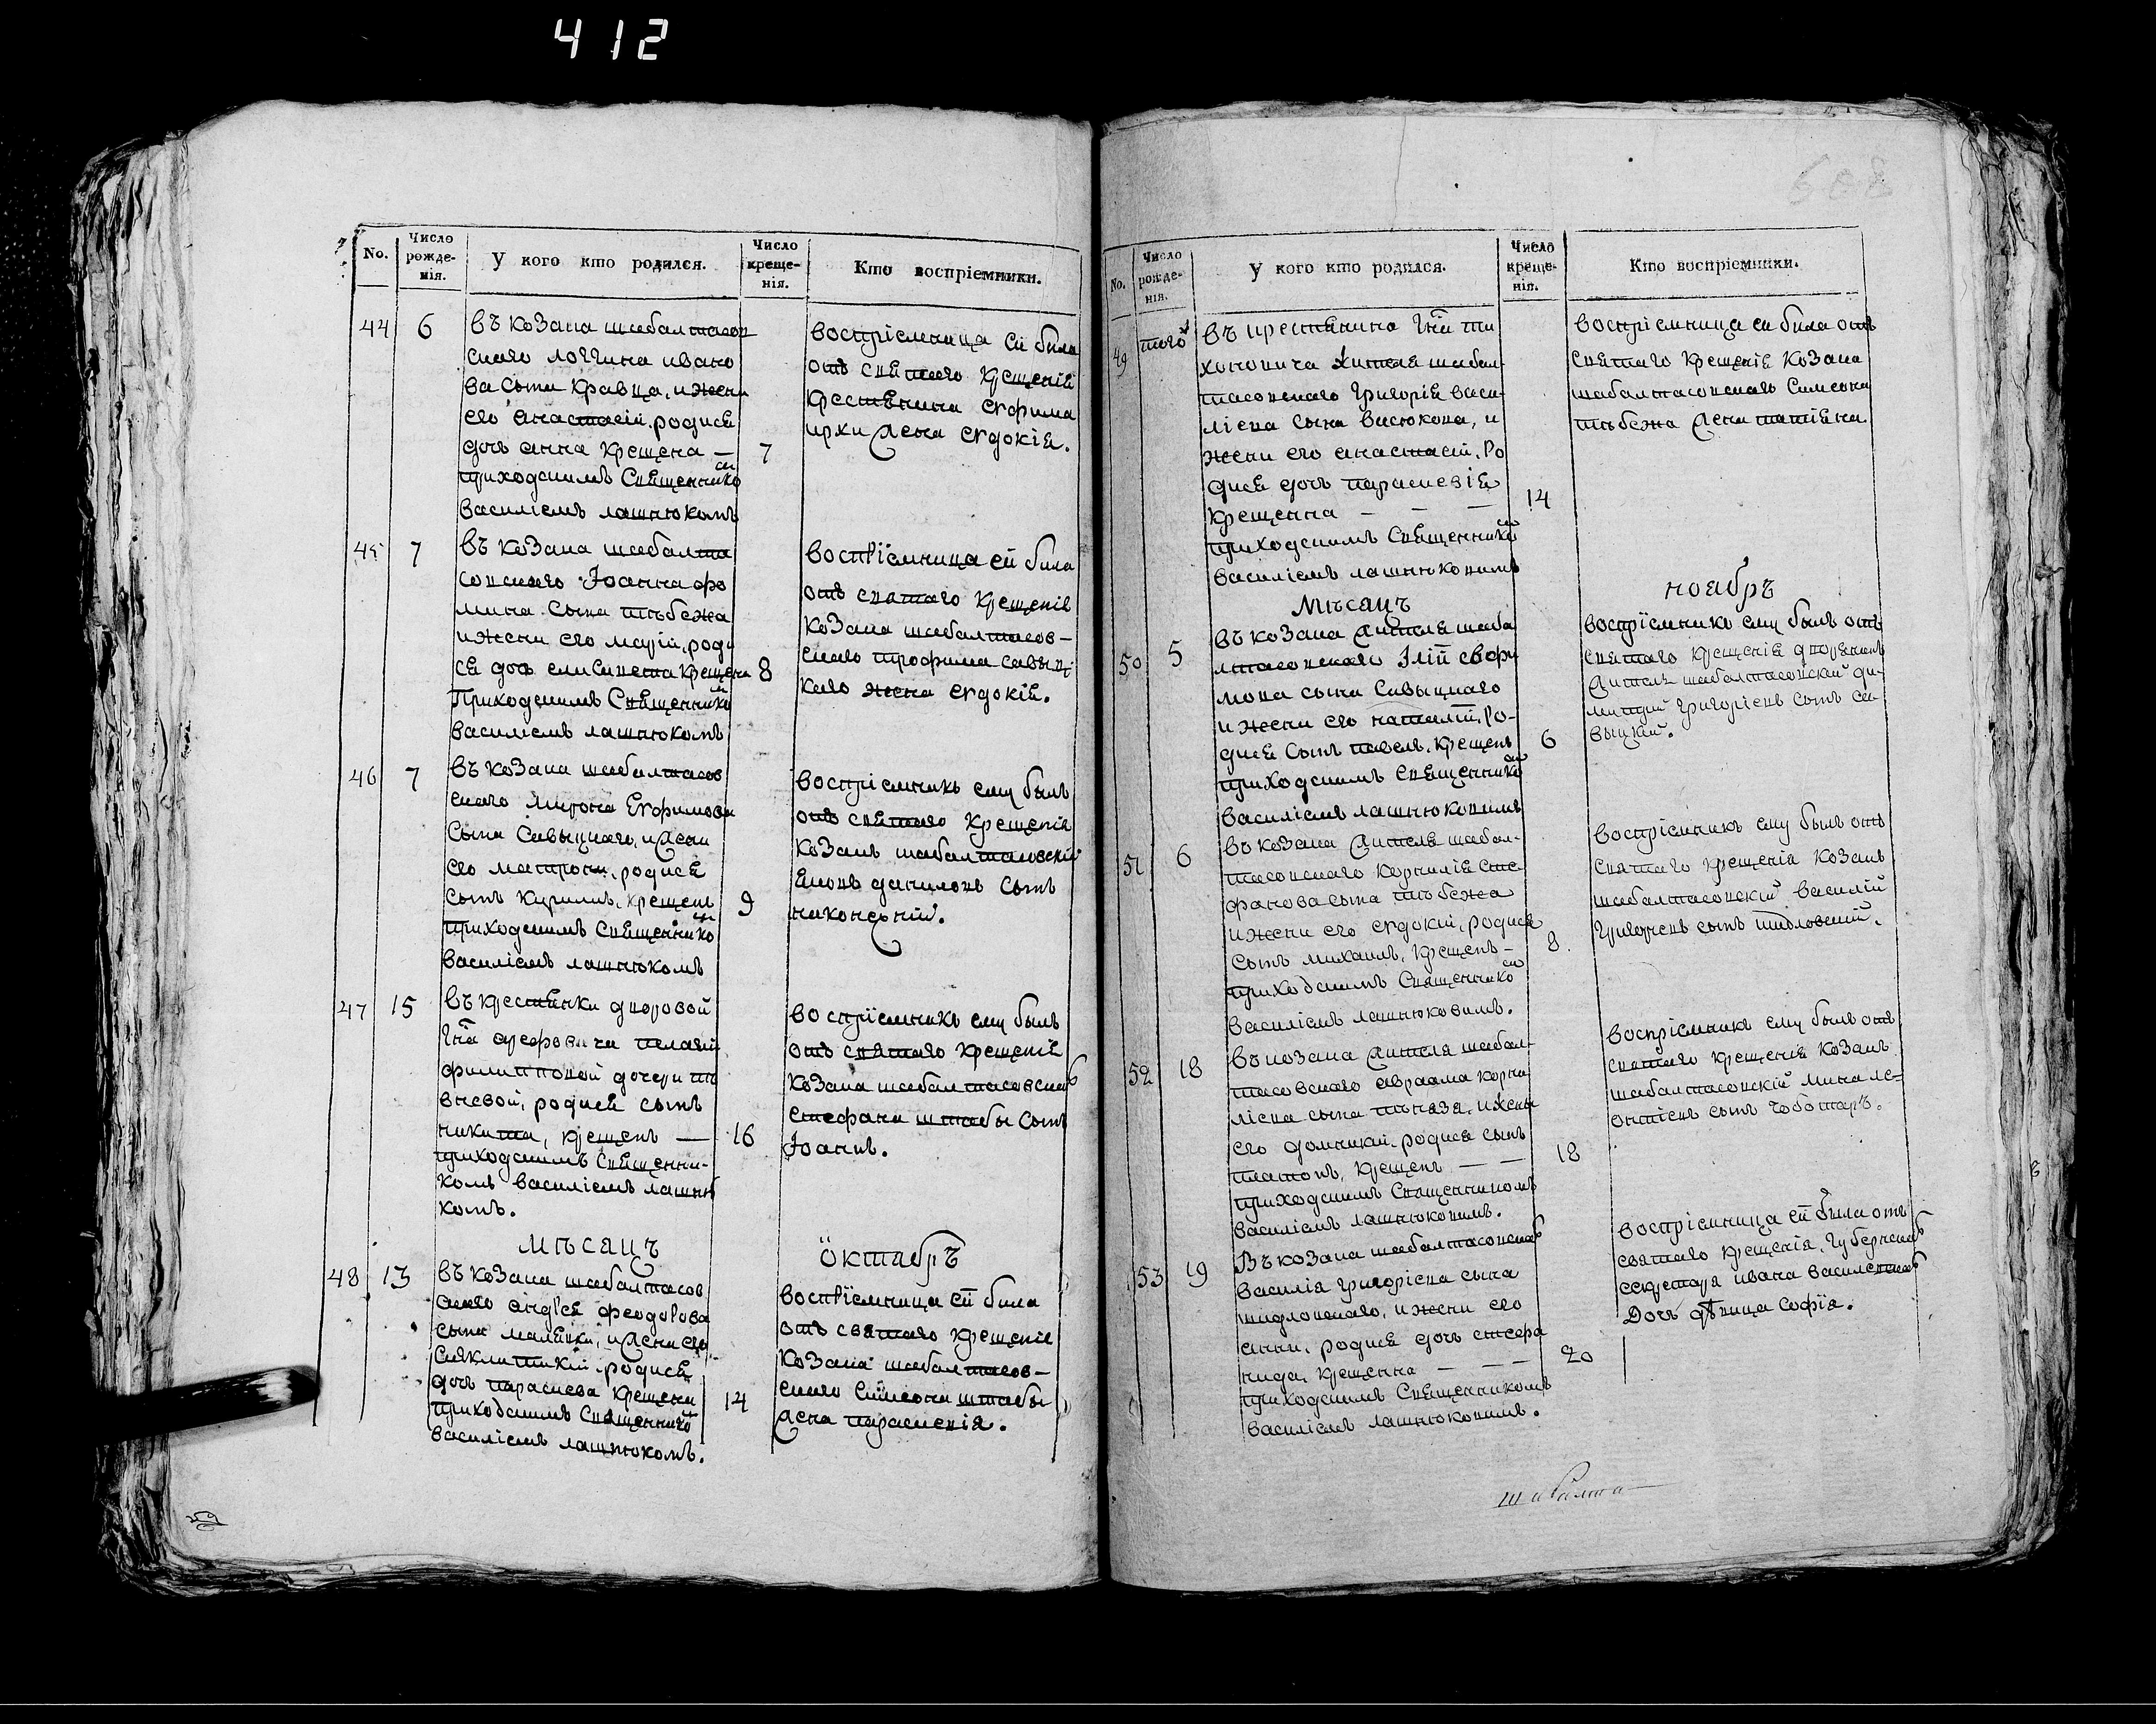 412
No.
Число рожде- нія.
У кого кто родился.
Число креще- нія.
Кто воспріемники.
44 6 въ козака шабалтасов
скаго логгина ивано
ва сына кравца, и жени
его анастасіи, родися
дочь анна крещена — 7
приходскимъ Священнико
василіемъ лашнюкомъ
воспріемница ей била
отъ святаго крещенія
крестянина ефима
жена евдокія.
45 7 въ козака шабалта
совскаго Іоанна фо
мина сына тъбежа
и жени его маріи, роди
ся дочь елисавета крещена 8
Приходскимъ Священнико
василіемъ лашнюкомъ
воспріемница ей била
отъ святаго крещенія
козака шабалтасов-
скаго трофима савыц
каго жена евдокія.
46 7 въ козака шабалтасов
скаго мирона Ефимова
сына Савыцкаго, и жени
его матрони, родися
сынъ кирилъ, крещенъ 9
приходскимъ Священнико
василіемъ лашнюкомъ
воспріемникъ ему былъ
отъ святаго крещенія
козакъ шабалтасовскій
даниловъ сынъ
47 15 въ крестянки дворовой
пелагіи
филиповой дочери
родися сынъ
никита, крещенъ — 16
приходскимъ Священни-
комъ василіемъ лашню
комъ.
воспріемникъ ему былъ
отъ святаго крещенія
козака шабалтасовскаго
стефана штабы сынъ
Іоаннъ.
мѣсяцъ октябръ
48 13 въ козака шабалтасов
скаго андрея феодорова
сына и жени его
родися
дочь параскева крещена 14
приходскимъ Священнико
василіемъ лашнюкомъ.
воспріемница ей била
отъ святаго крещенія
козака шабалтасов-
скаго Симеона штабы
жена параскевія.
No.
Число рожде- нія.
У кого кто родился.
Число креще- нія.
Кто воспріемники.
49 того въ крестянина Гна ти
хоновича жителя шабал-
тасовскаго Григорія васи-
ліева сына васюкова, и
жени его анастасіи, Ро
дися дочь параскевія
крещенна — — — 14
приходскимъ Священнико
василіемъ лашнюковимъ
воспріемница ей била отъ
святаго крещенія козака
шабалтасовскаго Симеона
тъбежа жена татіяна
Мѣсяцъ ноябръ
50 5 въ козака жителя шаба
лтасовскаго Іліи
сына Савыцкаго
и жени его наталіи, Ро-
дися сынъ павелъ, крещенъ 6
приходскимъ Священнико
василіемъ лашнюковимъ
воспріемникъ ему былъ отъ
святаго крещенія дворянинъ
житель шабалтасовскій ди-
митрій Григоріевъ сынъ Са-
выцкій.
51 6 въ козака жителя шабал-
тасовскаго Корнилія сте-
фанова сына тъбежа
и жени его евдокіи, родися
сынъ михаилъ, крещенъ — 8
приходскимъ Священнико
василіемъ лашнюковимъ.
воспріемникъ ему былъ отъ
святаго крещенія козакъ
шабалтасовскій василій
Григоріевъ сынъ шидловскій.
52 18 въ козака жителя шабал-
тасовскаго авраама корни
ліева сына и жени
его домникіи родися сынъ
платонъ, крещенъ — — 18
приходскимъ Священникомъ
василіемъ лашнюковимъ.
воспріемникъ ему былъ отъ
святаго крещенія козакъ
шабалтасовскій мина ле-
онтіевъ сынъ чоботаръ.
53 19 Въ козака шабалтасовскаго
василія григоріева сына
шидловскаго, и жени его
анни, родися дочь степа
нида, крещенна — — — 20
приходскимъ Священникомъ
василіемъ лашнюковимъ.
воспріемница ей была отъ
святаго крещенія, губернскаго
секретаря ивана
Дочь дѣвица софія.